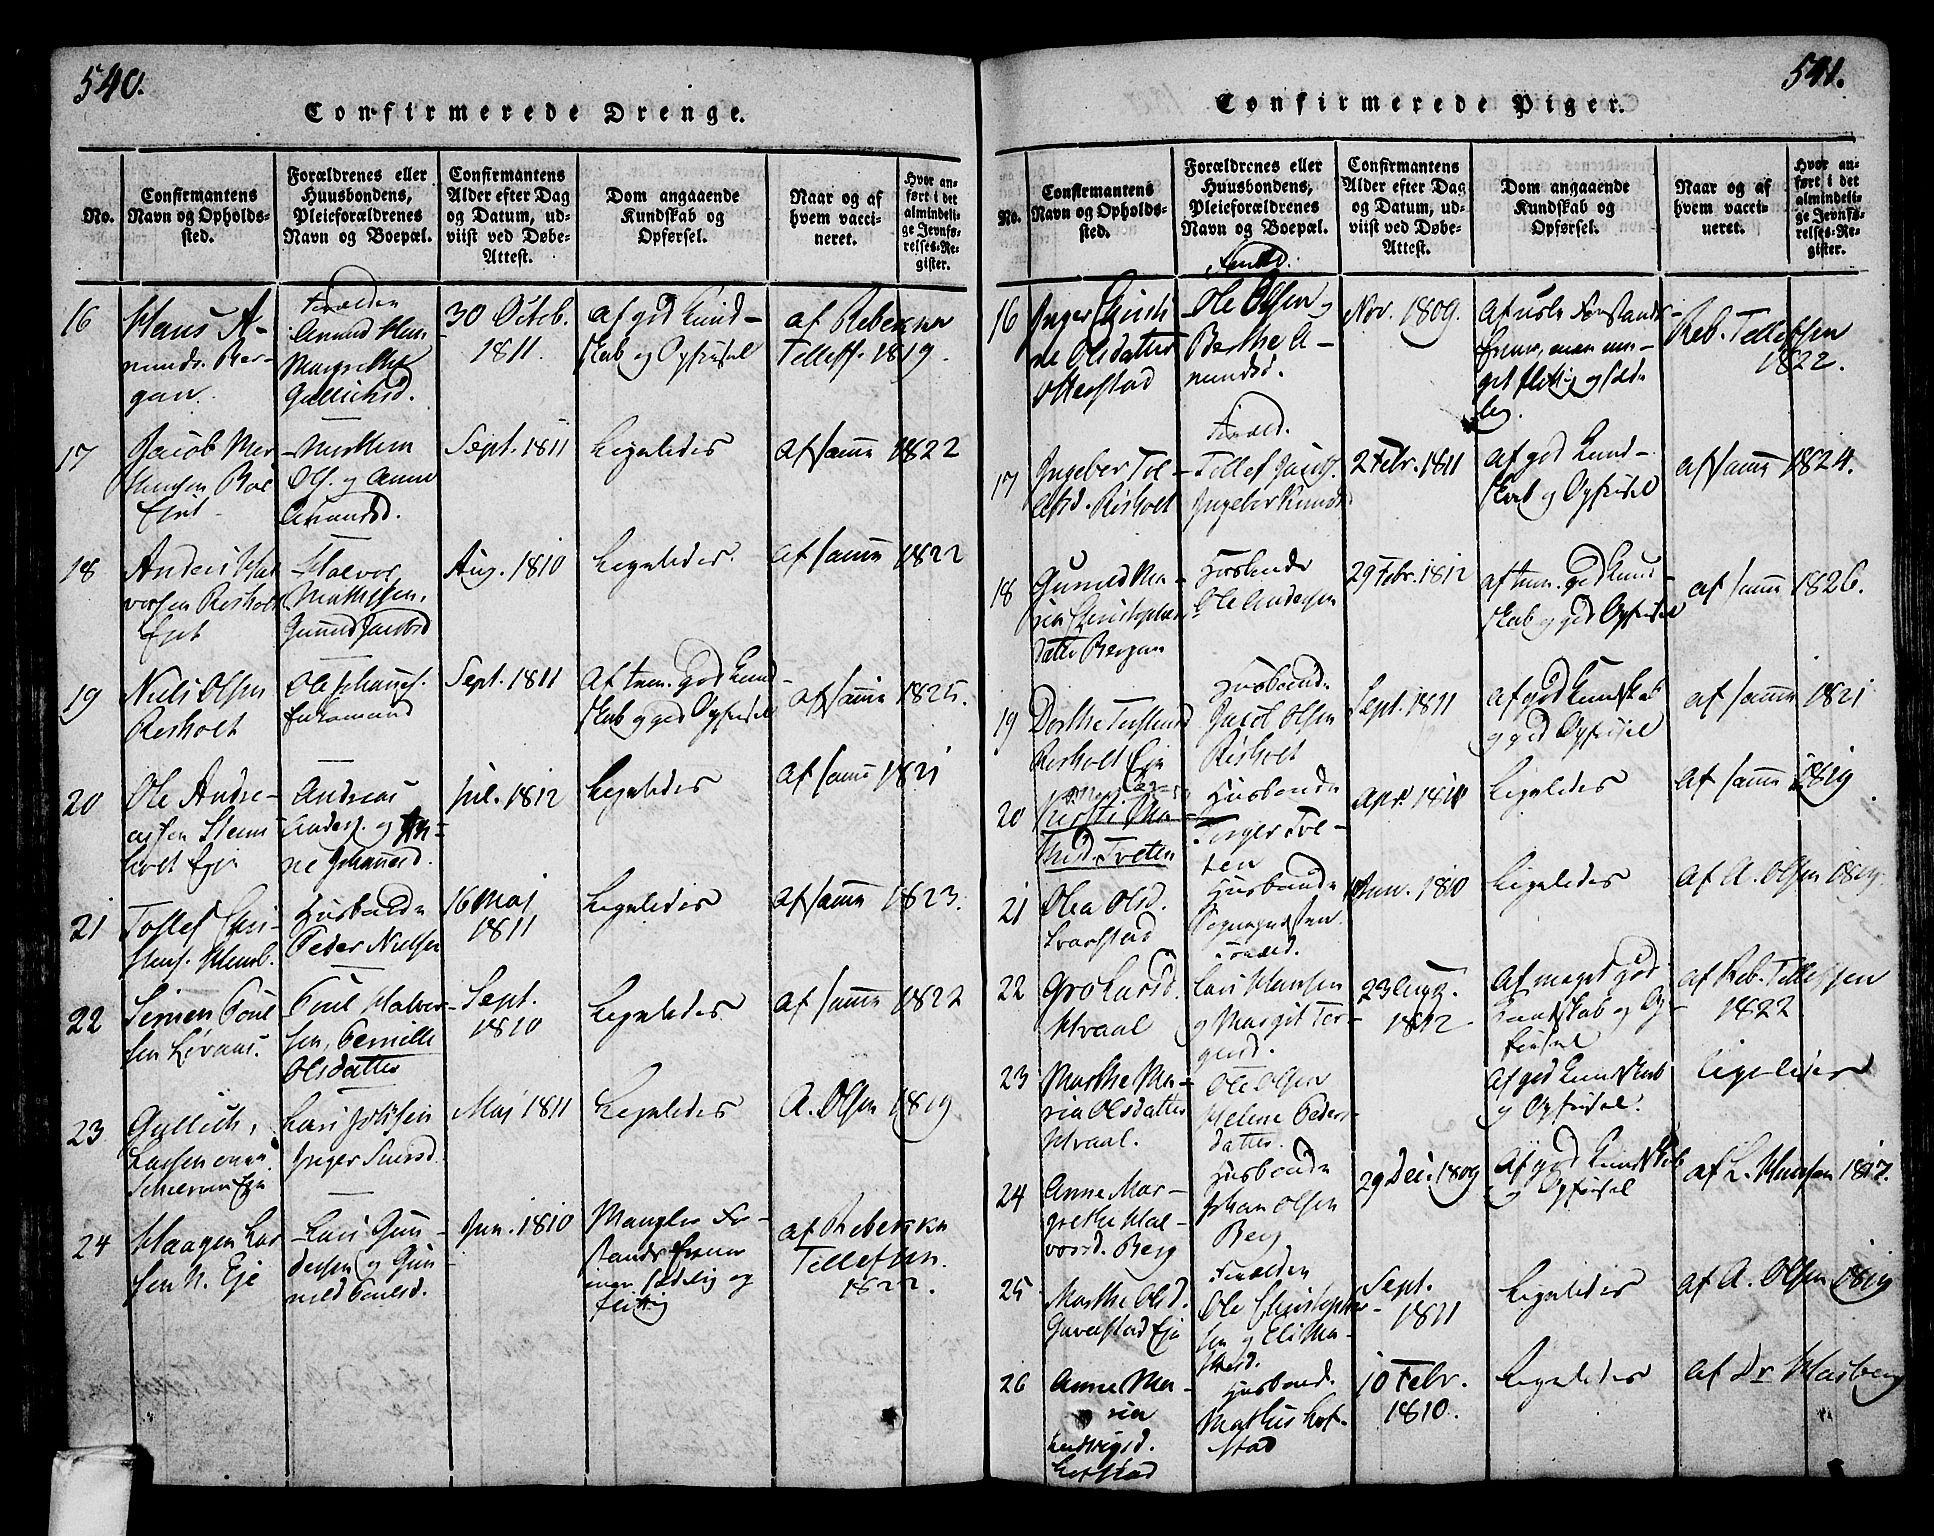 540.
Confirmerede Drenge.
No.
Confirmantens
Navn og Opholds-
sted.
Forældrenes eller
Huusbondens,
Pleieforældrenes
Navn og Boepæl.
Confirmantens
Alder efter Dag
og Datum, ud-
viist ved Døbe-
Attest.
Dom angaaende
Kundskab og
Opførsel.
Naar og af
hvem vacci-
neret.
Hvor an-
ført i det
almindeli-
ge Jevnfø-
relses-Re-
gister.
16
Hans A-
munds. Ber-
gan.
Amund Han
Margrethe
Gullichsd.
30 Octob.
1811.
Af god Kund-
skab og Opførsel
af Rebekka
Tellefs. 1819.
17
Jacob Mor-
tensen Roe
Ejet
Morthen
Ols. og Anne
Amundsd.
Sept. 1811
Ligeledes
af samme 1822
18
Anders Hal
vorsen Risholt
Ejet
Halvor
Mathisen,
Gunild Jacobsd
Aug. 1810
Ligeledes.
af samme 1822
19
Niels Olsen
Risholt
Ole Johannes.
Sept. 1811
Af tem. god Kund-
skab og god Opførsel
af samme 1825.
20
Ole Andre-
assen Steens-
holt Eje
Andreas
Anders. og An-
ne Johannesd.
Jul. 1812
Ligeledes
af samme 1821
21
Tollef Chri-
stens.
Husbonde
Peder Nielsen
16 Maj
1811
Ligeledes
af samme 1823.
22
Simen Poul
sen
Poul Halvor-
sen, Pernille
Olsdatter
Sept.
1810
Ligeledes
af samme 1822
23
Gullich
Larsen
Lars
Inger
Maj 1811
Ligeledes
A. Olsen 1819
24
Haagen Lar
sen N. Eje
Lars Gun-
dersen og Gun-
nild Poulsd.
Jun. 1810
Mangler For-
stands Evner
men sædelig og
flittig
af Rebekka
Tellefsen.
1822.
541.
Confirmerede Piger.
No.
Confirmantens
Navn og Opholds-
sted.
Forældrenes eller
Huusbondens,
Pleieforældrenes
Navn og Boepæl.
Confirmantens
Alder efter Dag
og Datum, ud-
viist ved Døbe-
Attest.
Dom angaaende
Kundskab og
Opførsel.
Naar og af
hvem vacci-
neret.
Hvor an-
ført i det
almindeli-
ge Jevnfø-
relses-Re-
gister.
16
Inger Christi-
ne Olsdatter
Otterstad
Foræld.
Ole Olsen
Berthe A-
mundsd.
Nov. 1809.
Af usle Forstands-
Evner, men me-
get flittig og sæde-
lig.
Reb. Tellefsen
1822.
17
Ingebor Tol-
lefsd. Risholt
Foræld.
Tellef Jacobs.
Ingebor Knuds
2 Febr. 1811
Af god Kund-
skab og Opførsel
af samme 1824.
18
Gunild Ma-
ria Christophers
datter Bergan
Husbonde
Ole Andersen
29 Febr. 1812
af tem. god Kund-
skab og god Opførsel
af samme 1826.
19
Dorthe
Risholt Eje
Husbond.
Jacob Olsen
Risholt
Sept. 1811
Af god Kundskab
og god Opførsel
af samme 1821
20
Kirsti Ma-
thisd. Tveten
Husbonde
Torger Tve-
ten
Apr. 1811
Ligeledes
af samme 1819
21
Olea Olsd.
Tvarstad
Husbonde
Jun. 1810
Ligeledes
af A. Olsen 1819.
22
Gro Larsd.
Hvaal
Foræld.
Lars Hansen
og Margit Tor-
gersd.
23 Aug.
1812
Af meget god
Kundskab og Op-
førsel
af Reb. Tellefsen
1822
23
Marthe Ma-
ria Olsdatter
Hvaal.
Ole Olsen
Helene Peders-
datter.
Af god Kundskab
og Opførsel.
ligeledes
24
Anne Mar-
grethe Hal-
vorsd. Berg
Husbonde
Johan Olsen
Berg
29 Dec. 1809
Af god Kundskab
og Opførsel
af L. Hansen 1817.
25
Marthe Olsd.
Gaverstad Eje
Forælden
Ole Christopher-
sen og Eli Ma-
thisd.
Sept.
1811
Ligeledes
af A. Olsen 1819
26
Anne Ma-
ria
Ludvigsd.
Lofstad
Husbond.
Mathis Lof-
stad
10 Febr.
1810.
Ligeledes
af Dr Masberg